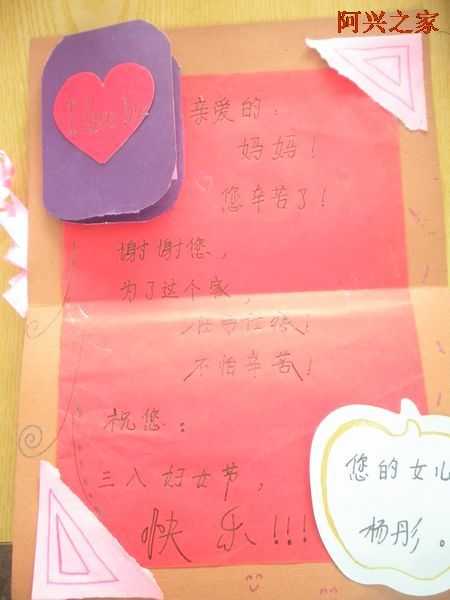 阿兴之家
I love
亲爱的:
妈妈!
您辛苦了!
谢谢您,
为了这个家,
任劳任怨!
不怕辛苦!
祝您:
三八妇女节,
快乐!!!
您的女儿
杨彤。